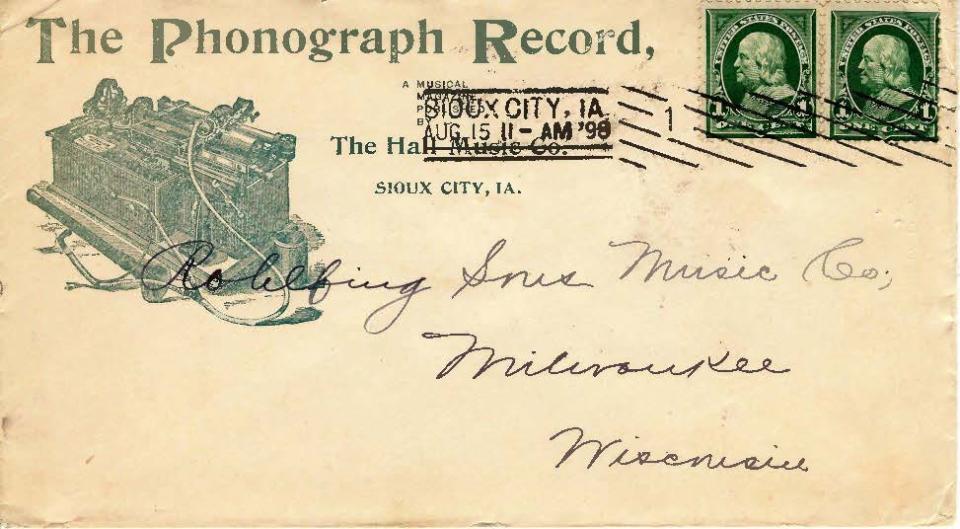 The Phonograph Record,
A MUSICAL
MAGAZINE
PUBLISHED
BY
The Hall Music Co.
SIOUX CITY, IA.
SIOUX CITY, IA.
AUG. 15 11-AM '98
1
UNITED STATES POSTAGE
1 1
ONE CENT
UNITED STATES POSTAGE
1 1
ONE CENT
Rohlfing Sons Music Co,
Milwaukee
Wisconsin